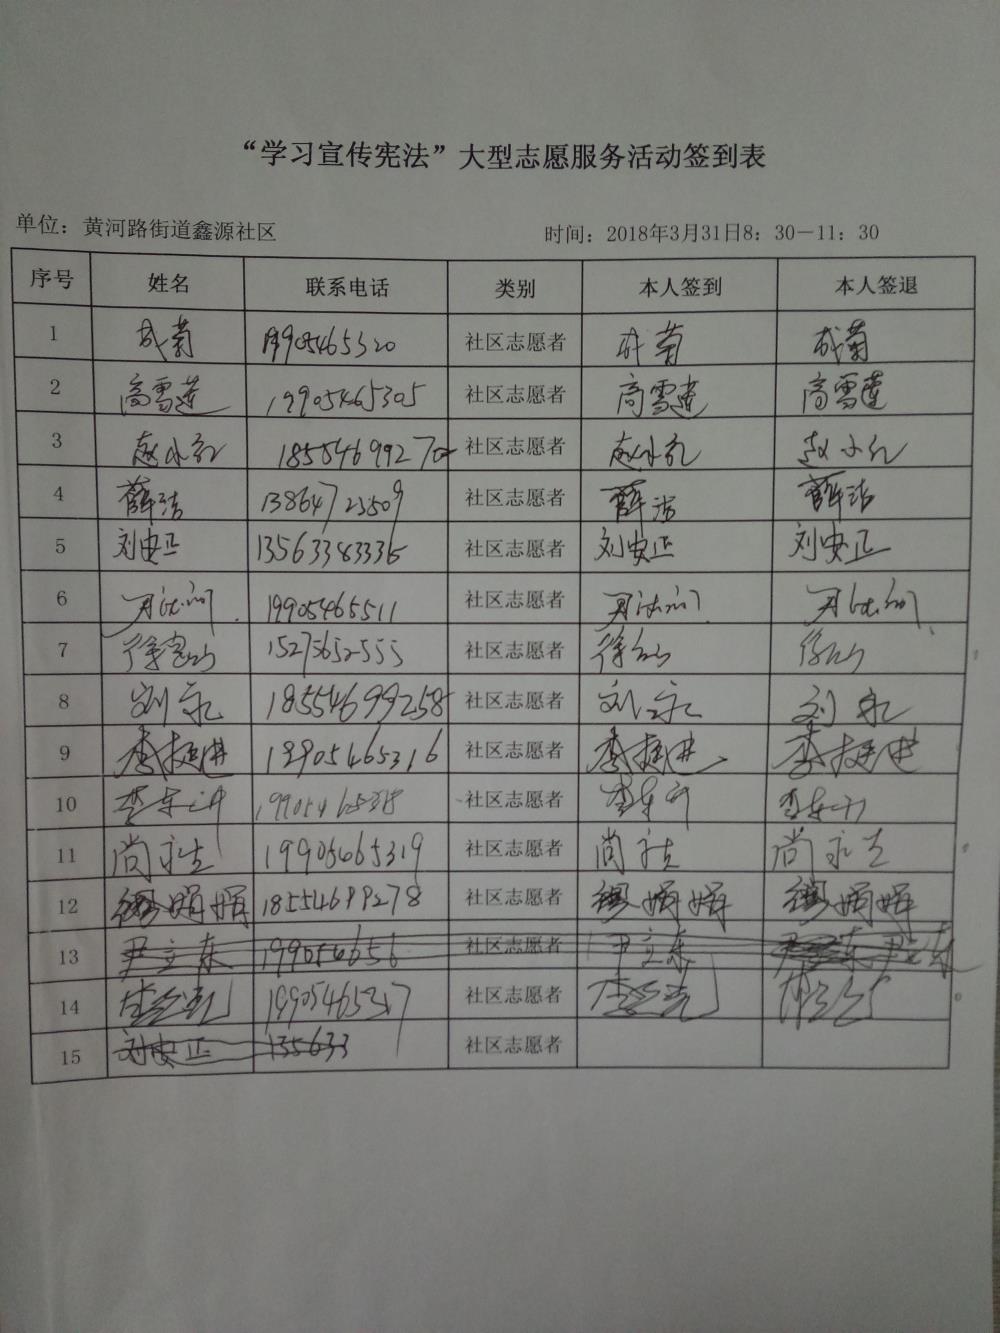 “学习宣传宪法”大型志愿服务活动签到表
单位：黄河路街道鑫源社区 时间：2018年3月31日8：30－11：30
序号 姓名 联系电话 类别 本人签到 本人签退
1 成菊 19905465320 社区志愿者 成菊 成菊
2 高雪莲 19905465305 社区志愿者 高雪莲 高雪莲
3 赵小红 18554699270 社区志愿者 赵小红 赵小红
4 薛洁 13864723509 社区志愿者 薛洁 薛洁
5 刘安正 13563383336 社区志愿者 刘安正 刘安正
6 19905465511 社区志愿者
7 15275652555 社区志愿者
8 刘永 18554699258 社区志愿者 刘永 刘永
9 李挺进 19905465316 社区志愿者 李挺进 李挺进
10 社区志愿者
11 尚永生 19905465319 社区志愿者 尚永生 尚永生
12 18554699278 社区志愿者
13 尹立东 199054656 社区志愿者 尹立东
14 19905465317 社区志愿者
15 刘安正 135633 社区志愿者